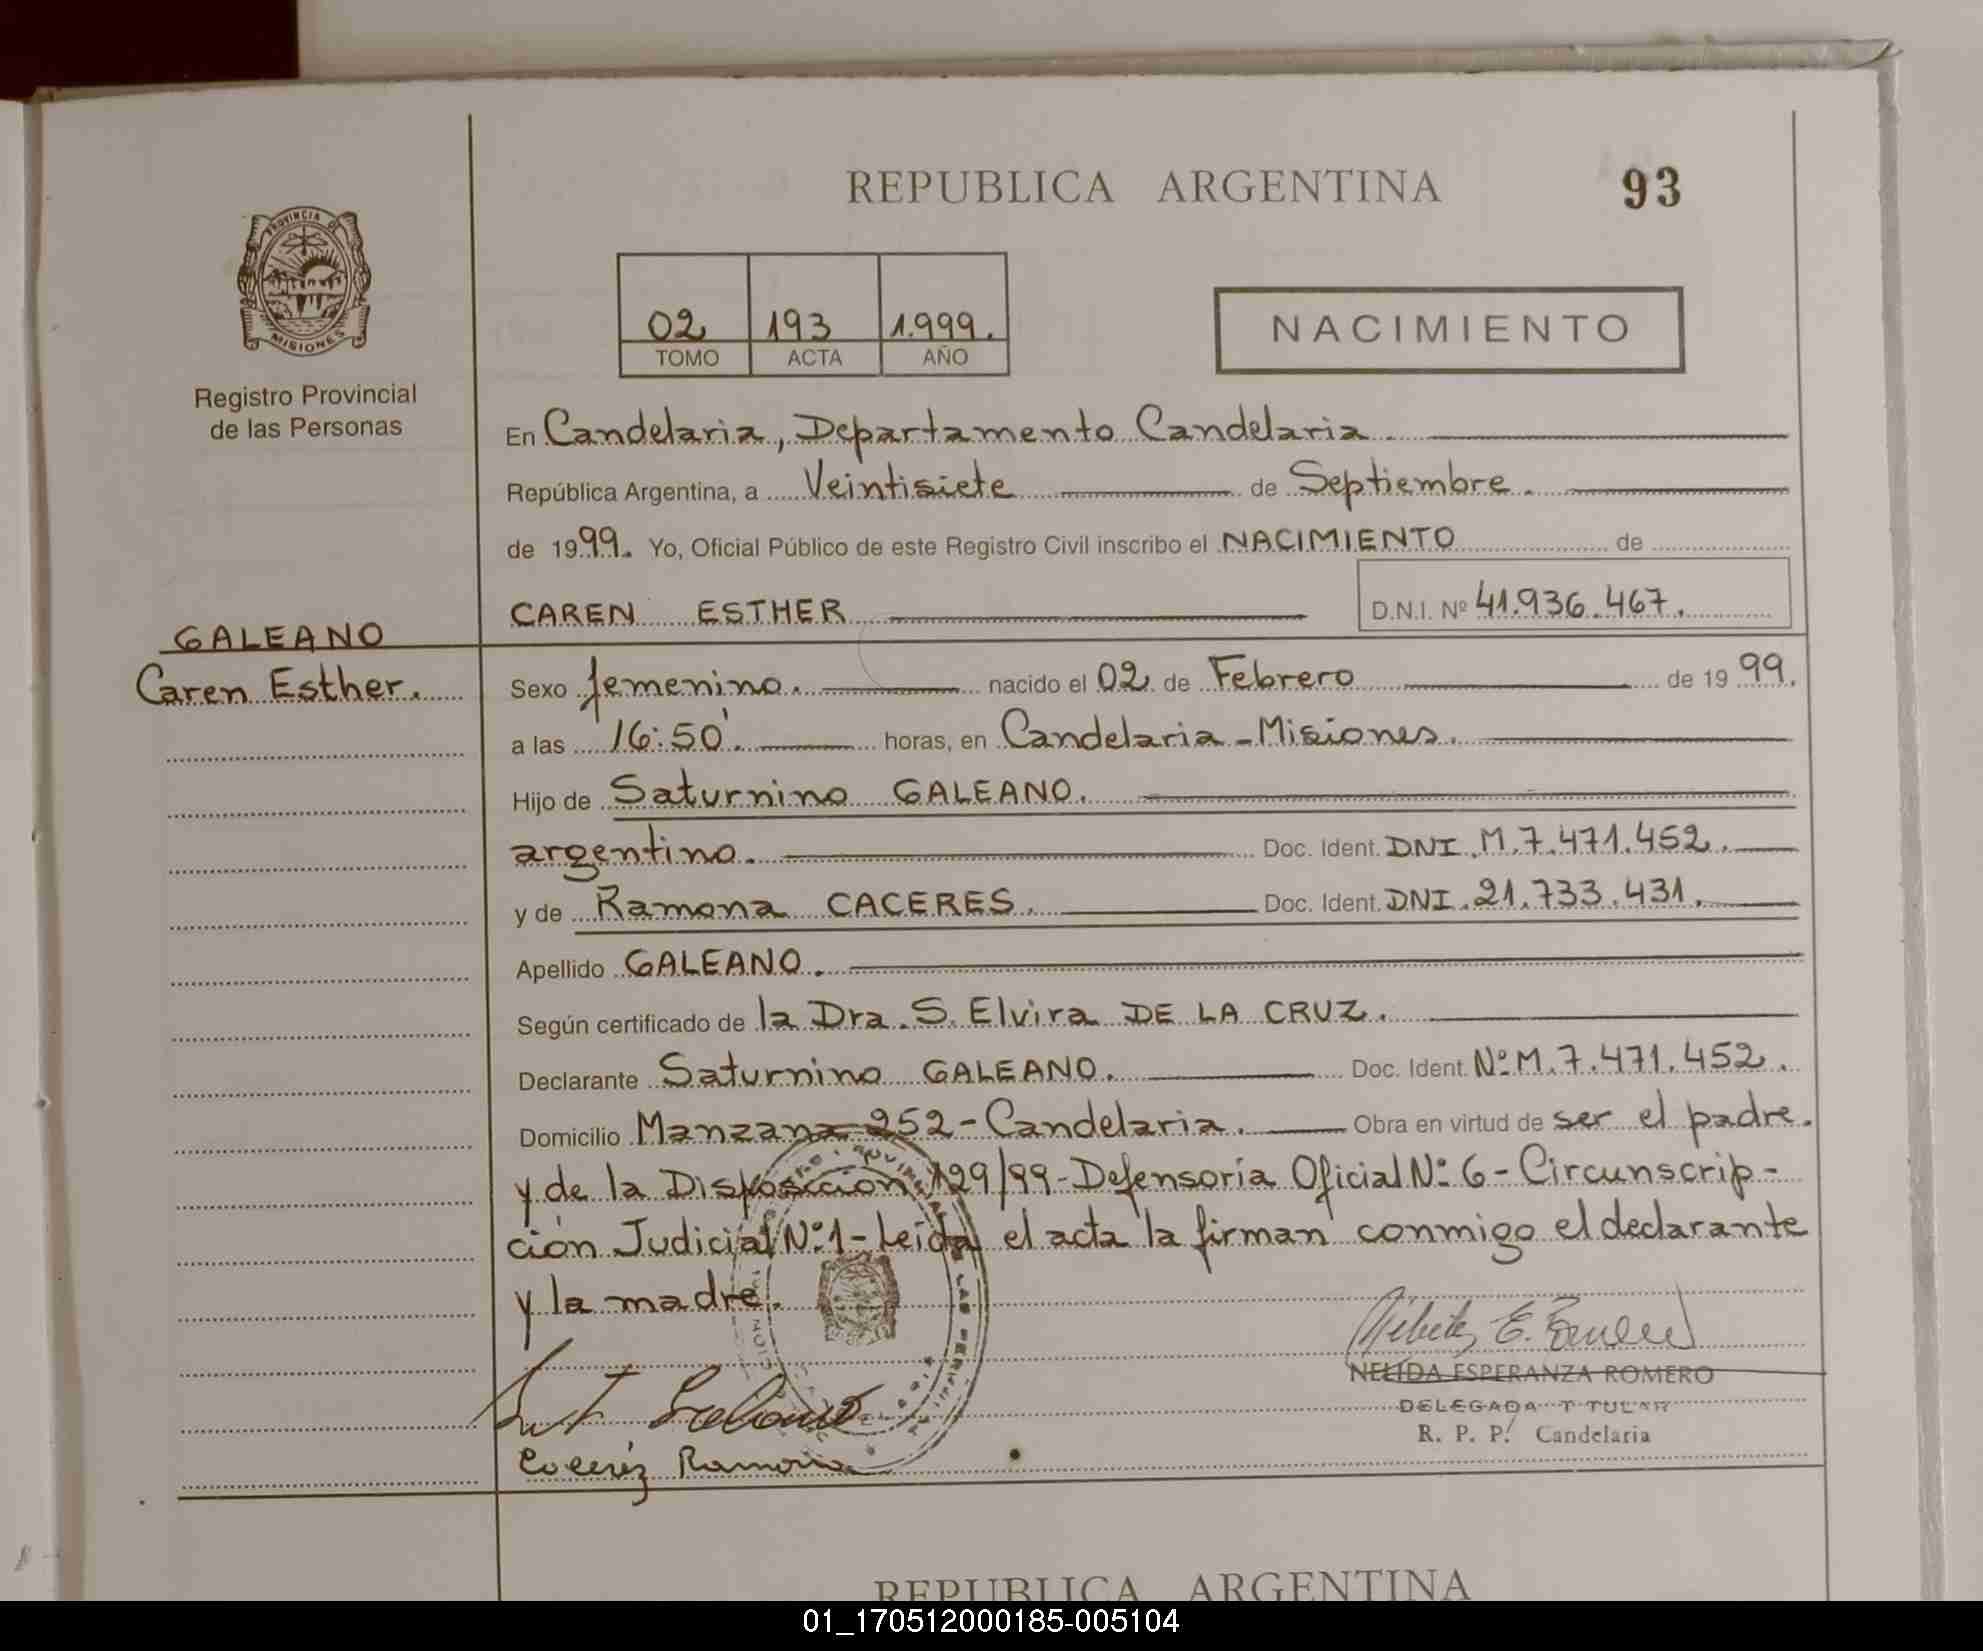 REPUBLICA ARGENTINA
93
PROVINCIA DE
MISIONES
Registro Provincial
de las Personas
02 193 1.999.
TOMO ACTA AÑO
NACIMIENTO
En Candelaria, Departamento Candelaria.
República Argentina, a Veintisiete de Septiembre.
de 1999. Yo, Oficial Público de este Registro Civil inscribo el NACIMIENTO de
CAREN ESTHER D.N.I. Nº 41.936.467.
GALEANO
Caren Esther.
Sexo femenino. nacido el 02 de Febrero de 1999.
a las 16:50'. horas, en Candelaria - Misiones.
Hijo de Saturnino GALEANO.
argentino. Doc. Ident. DNI. M. 7.471.452.
y de Ramona CACERES. Doc. Ident. DNI. 21.733.431.
Apellido GALEANO.
Según certificado de la Dra. S. Elvira DE LA CRUZ.
Declarante Saturnino GALEANO. Doc. Ident. Nº M. 7.471.452.
Domicilio Manzana 252 - Candelaria. Obra en virtud de ser el padre.
y de la Disposición 129/99 - Defensoría Oficial Nº 6 - Circunscrip-
ción Judicial Nº 1 - Leída el acta la firman conmigo el declarante
y la madre.
NELIDA ESPERANZA ROMERO
DELEGADA T TULAR
R. P. P. Candelaria
Ramona
REPUBLICA ARGENTINA
01_170512000185-005104